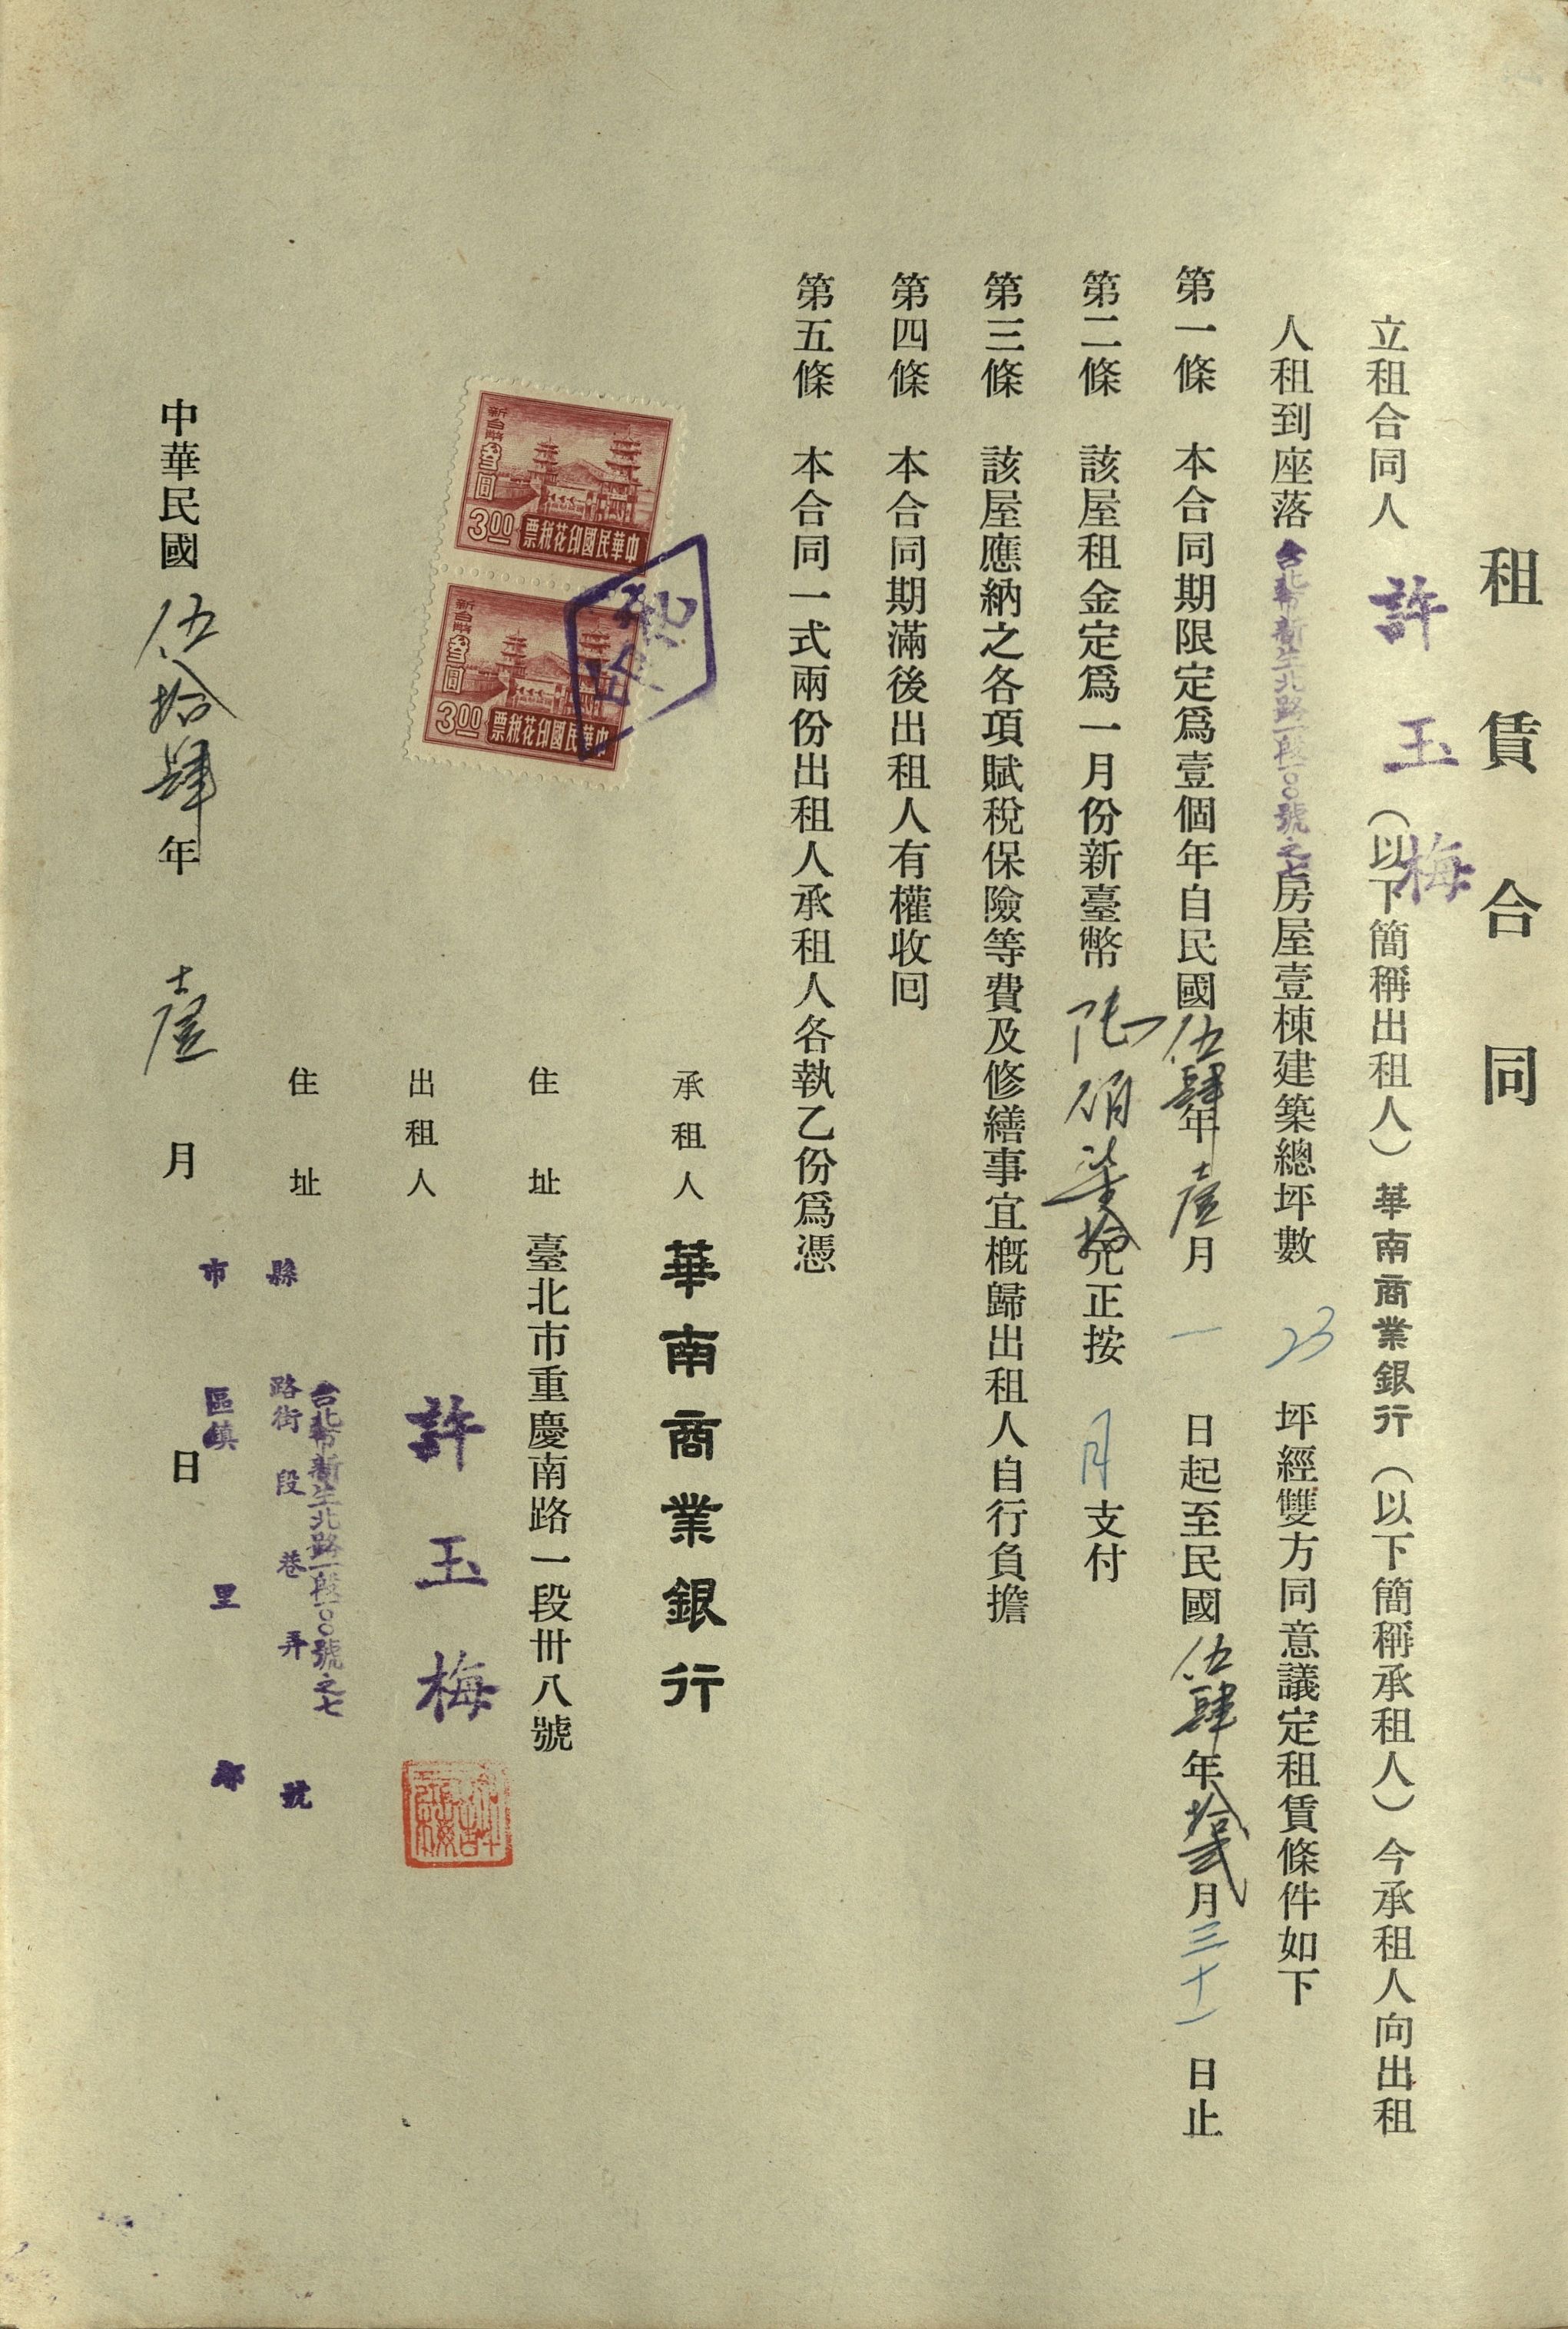 租賃合同
立租合同人 許玉梅 (以下簡稱出租人) 華南商業銀行 (以下簡稱承租人) 今承租人向出租
人租到座落台北市新生北路一段一〇〇號之七房屋壹棟建築總坪數 23 坪經雙方同意議定租賃條件如下
第一條 本合同期限定爲壹個年自民國伍肆年壹月一日起至民國伍肆年拾貳月三十一日止
第二條 該屋租金定爲一月份新臺幣陌柒拾元正按月支付
第三條 該屋應納之各項賦稅保險等費及修繕事宜概歸出租人自行負擔
第四條 本合同期滿後出租人有權收囘
第五條 本合同一式兩份出租人承租人各執乙份爲憑
新台幣 叁圓
3.00 中華民國印花稅票
新台幣 叁圓
3.00 中華民國印花稅票
承租人 華南商業銀行
住址 臺北市重慶南路一段卅八號
出租人 許玉梅
台北市新生北路一段一〇〇號之七
住址 縣 路街 段 巷 弄 號
市 區鎮 里 鄰
中華民國伍拾肆年壹月 日